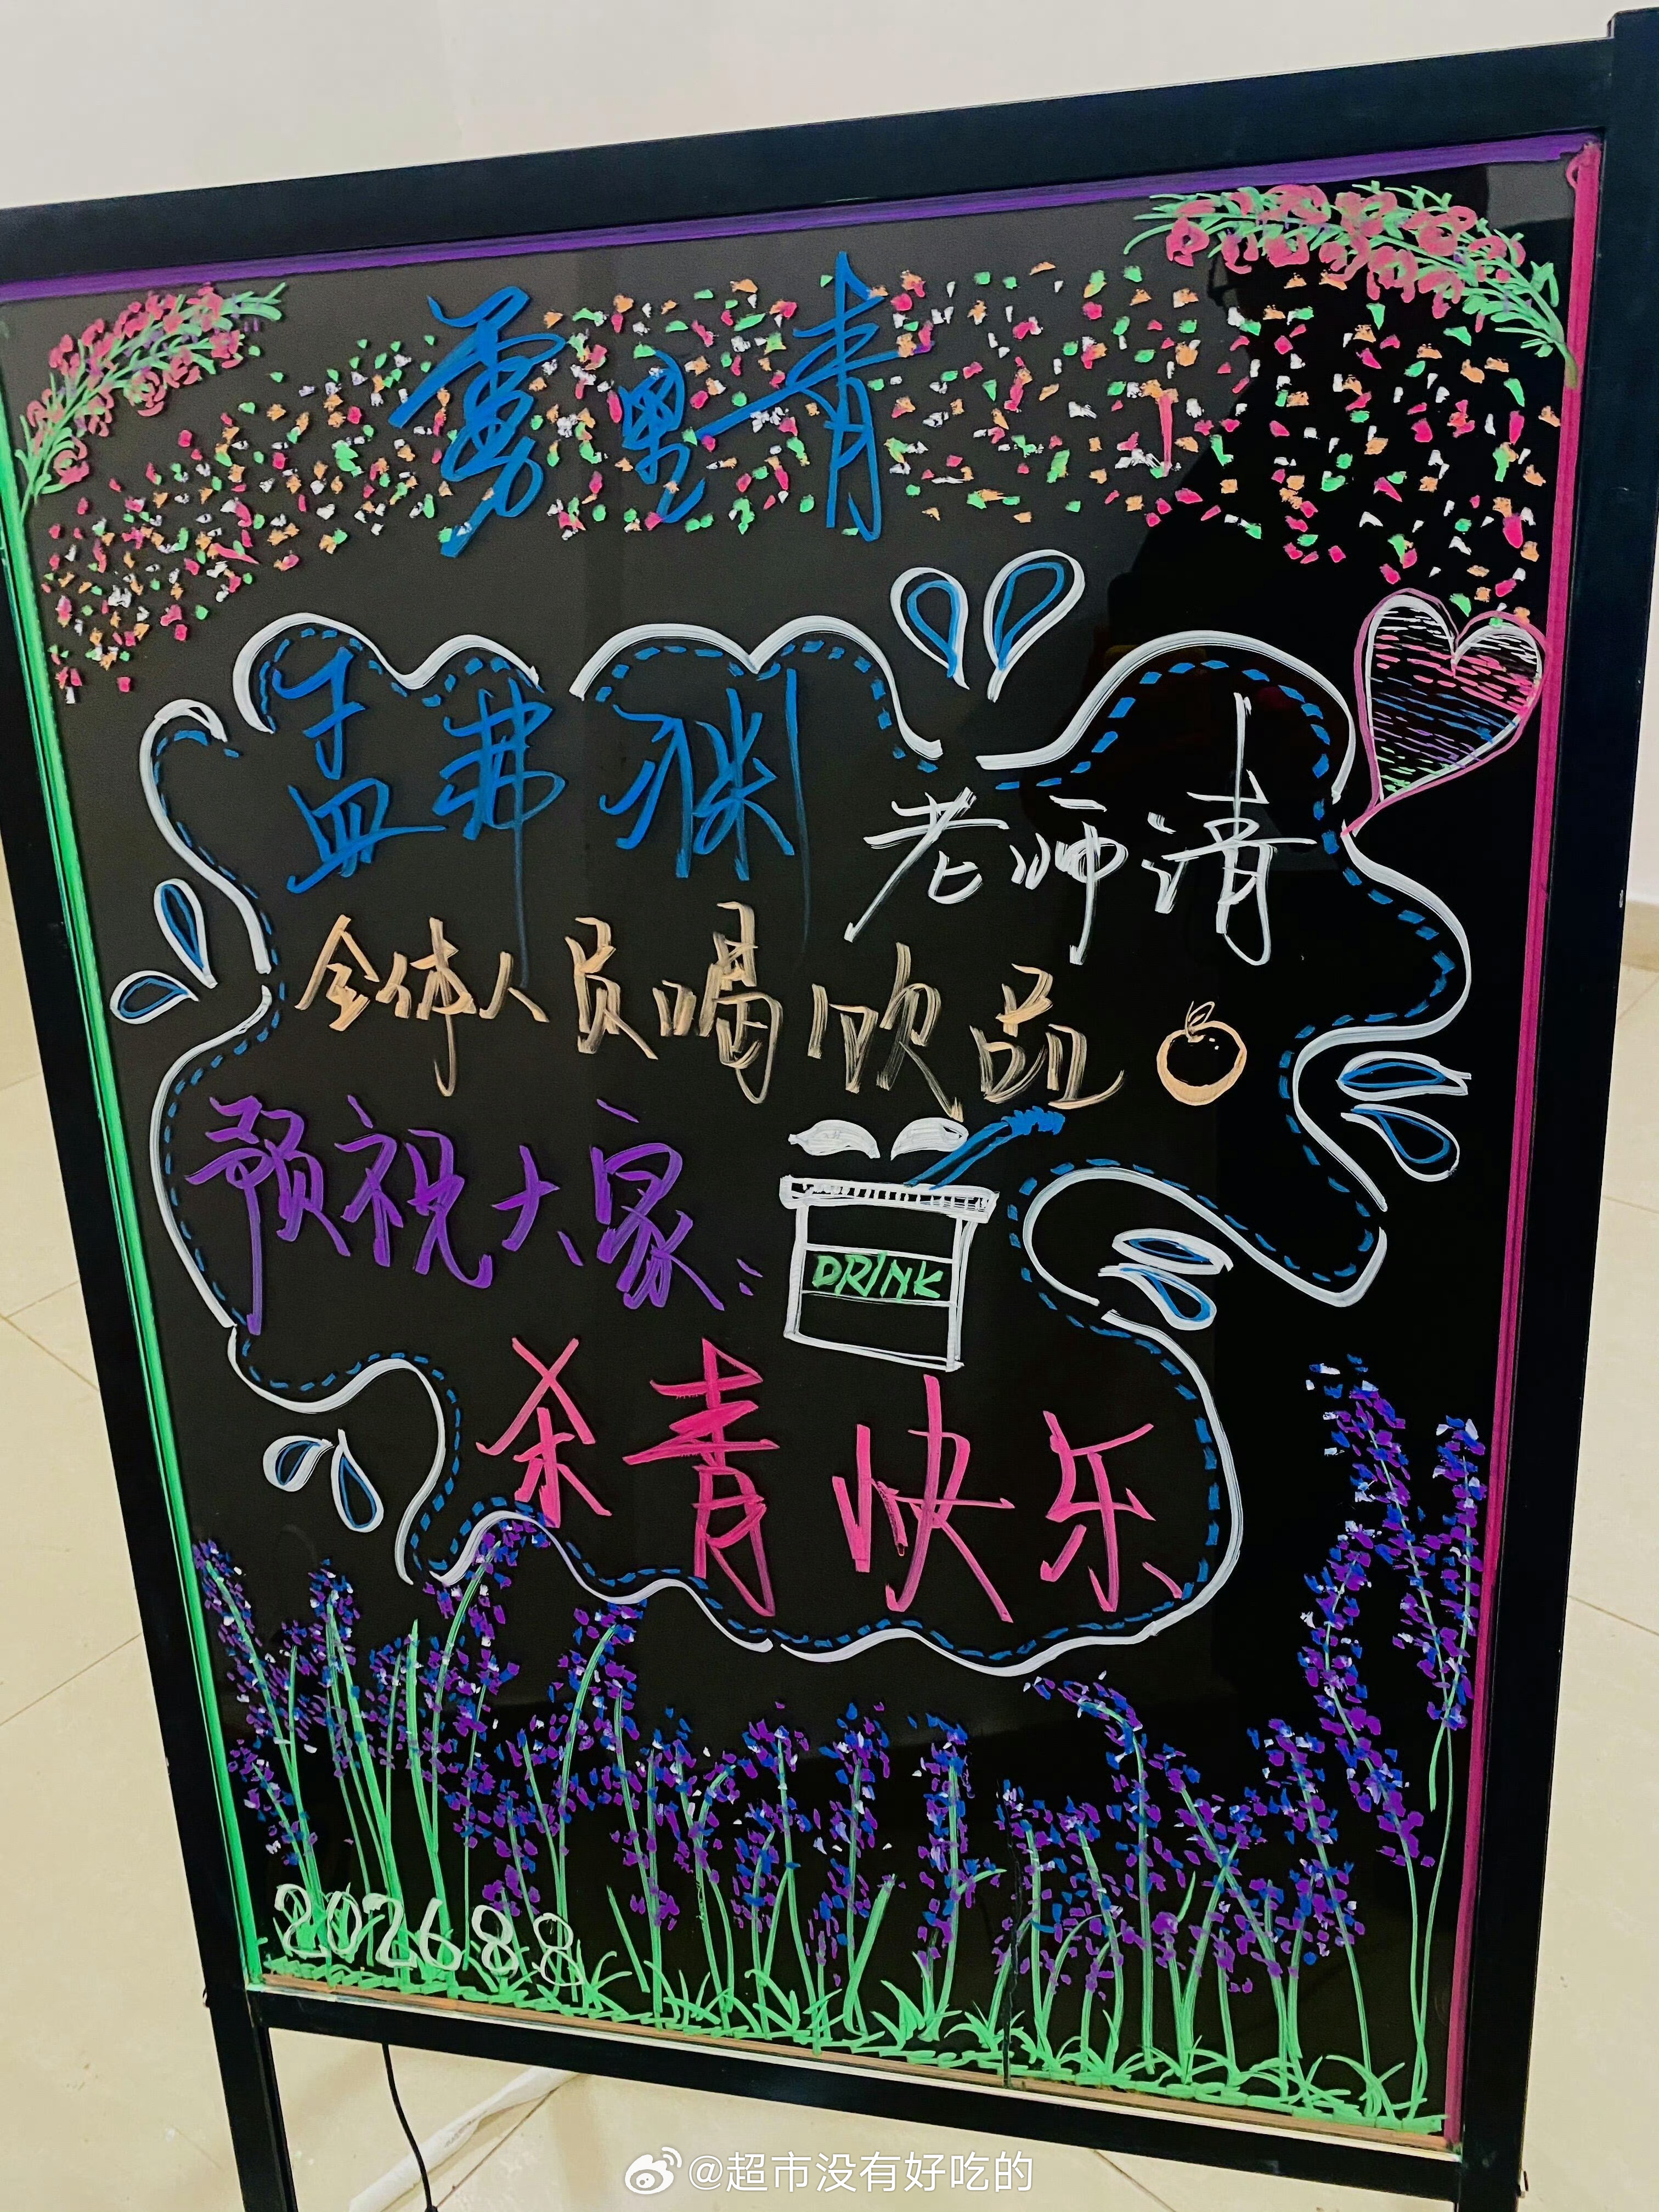 雾里青
孟弗渊老师请
全体人员喝饮品
预祝大家：
DRINK
杀青快乐
2026 8.8
@超市没有好吃的